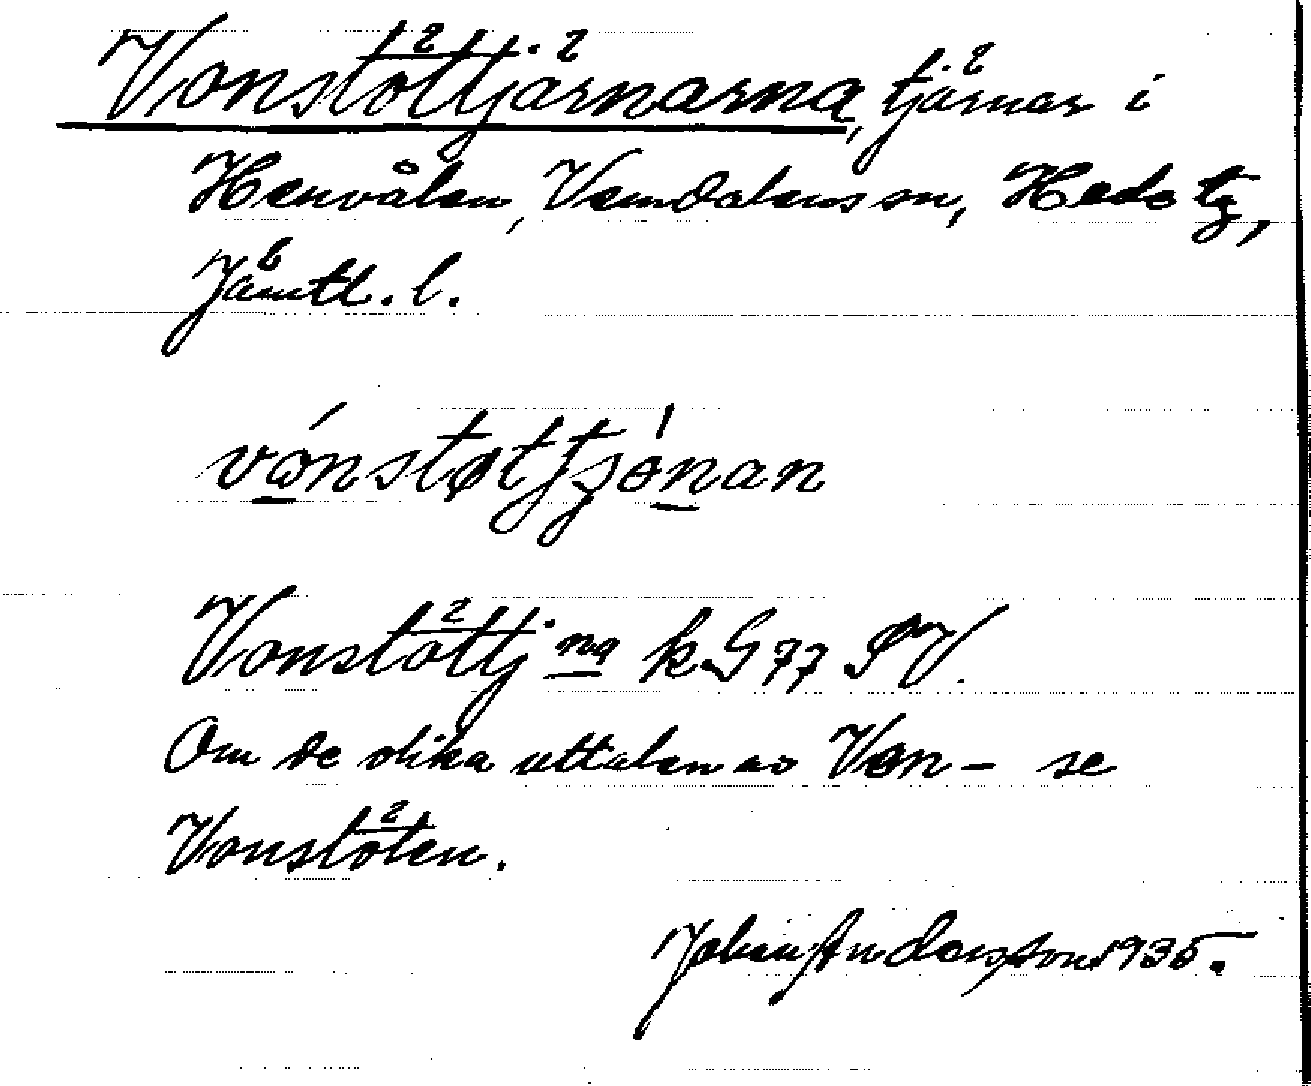 Vonstöttjärnarna, tjärnar i
Henvålen, Vemdalens sn, Hede tg,
Jämtl. l.
vónstøttjǿnan
Vonstöttj na k. G 77 SV.
Om de olika uttalen av Von- se
Vonstöten.
Johan Andersson 1935.